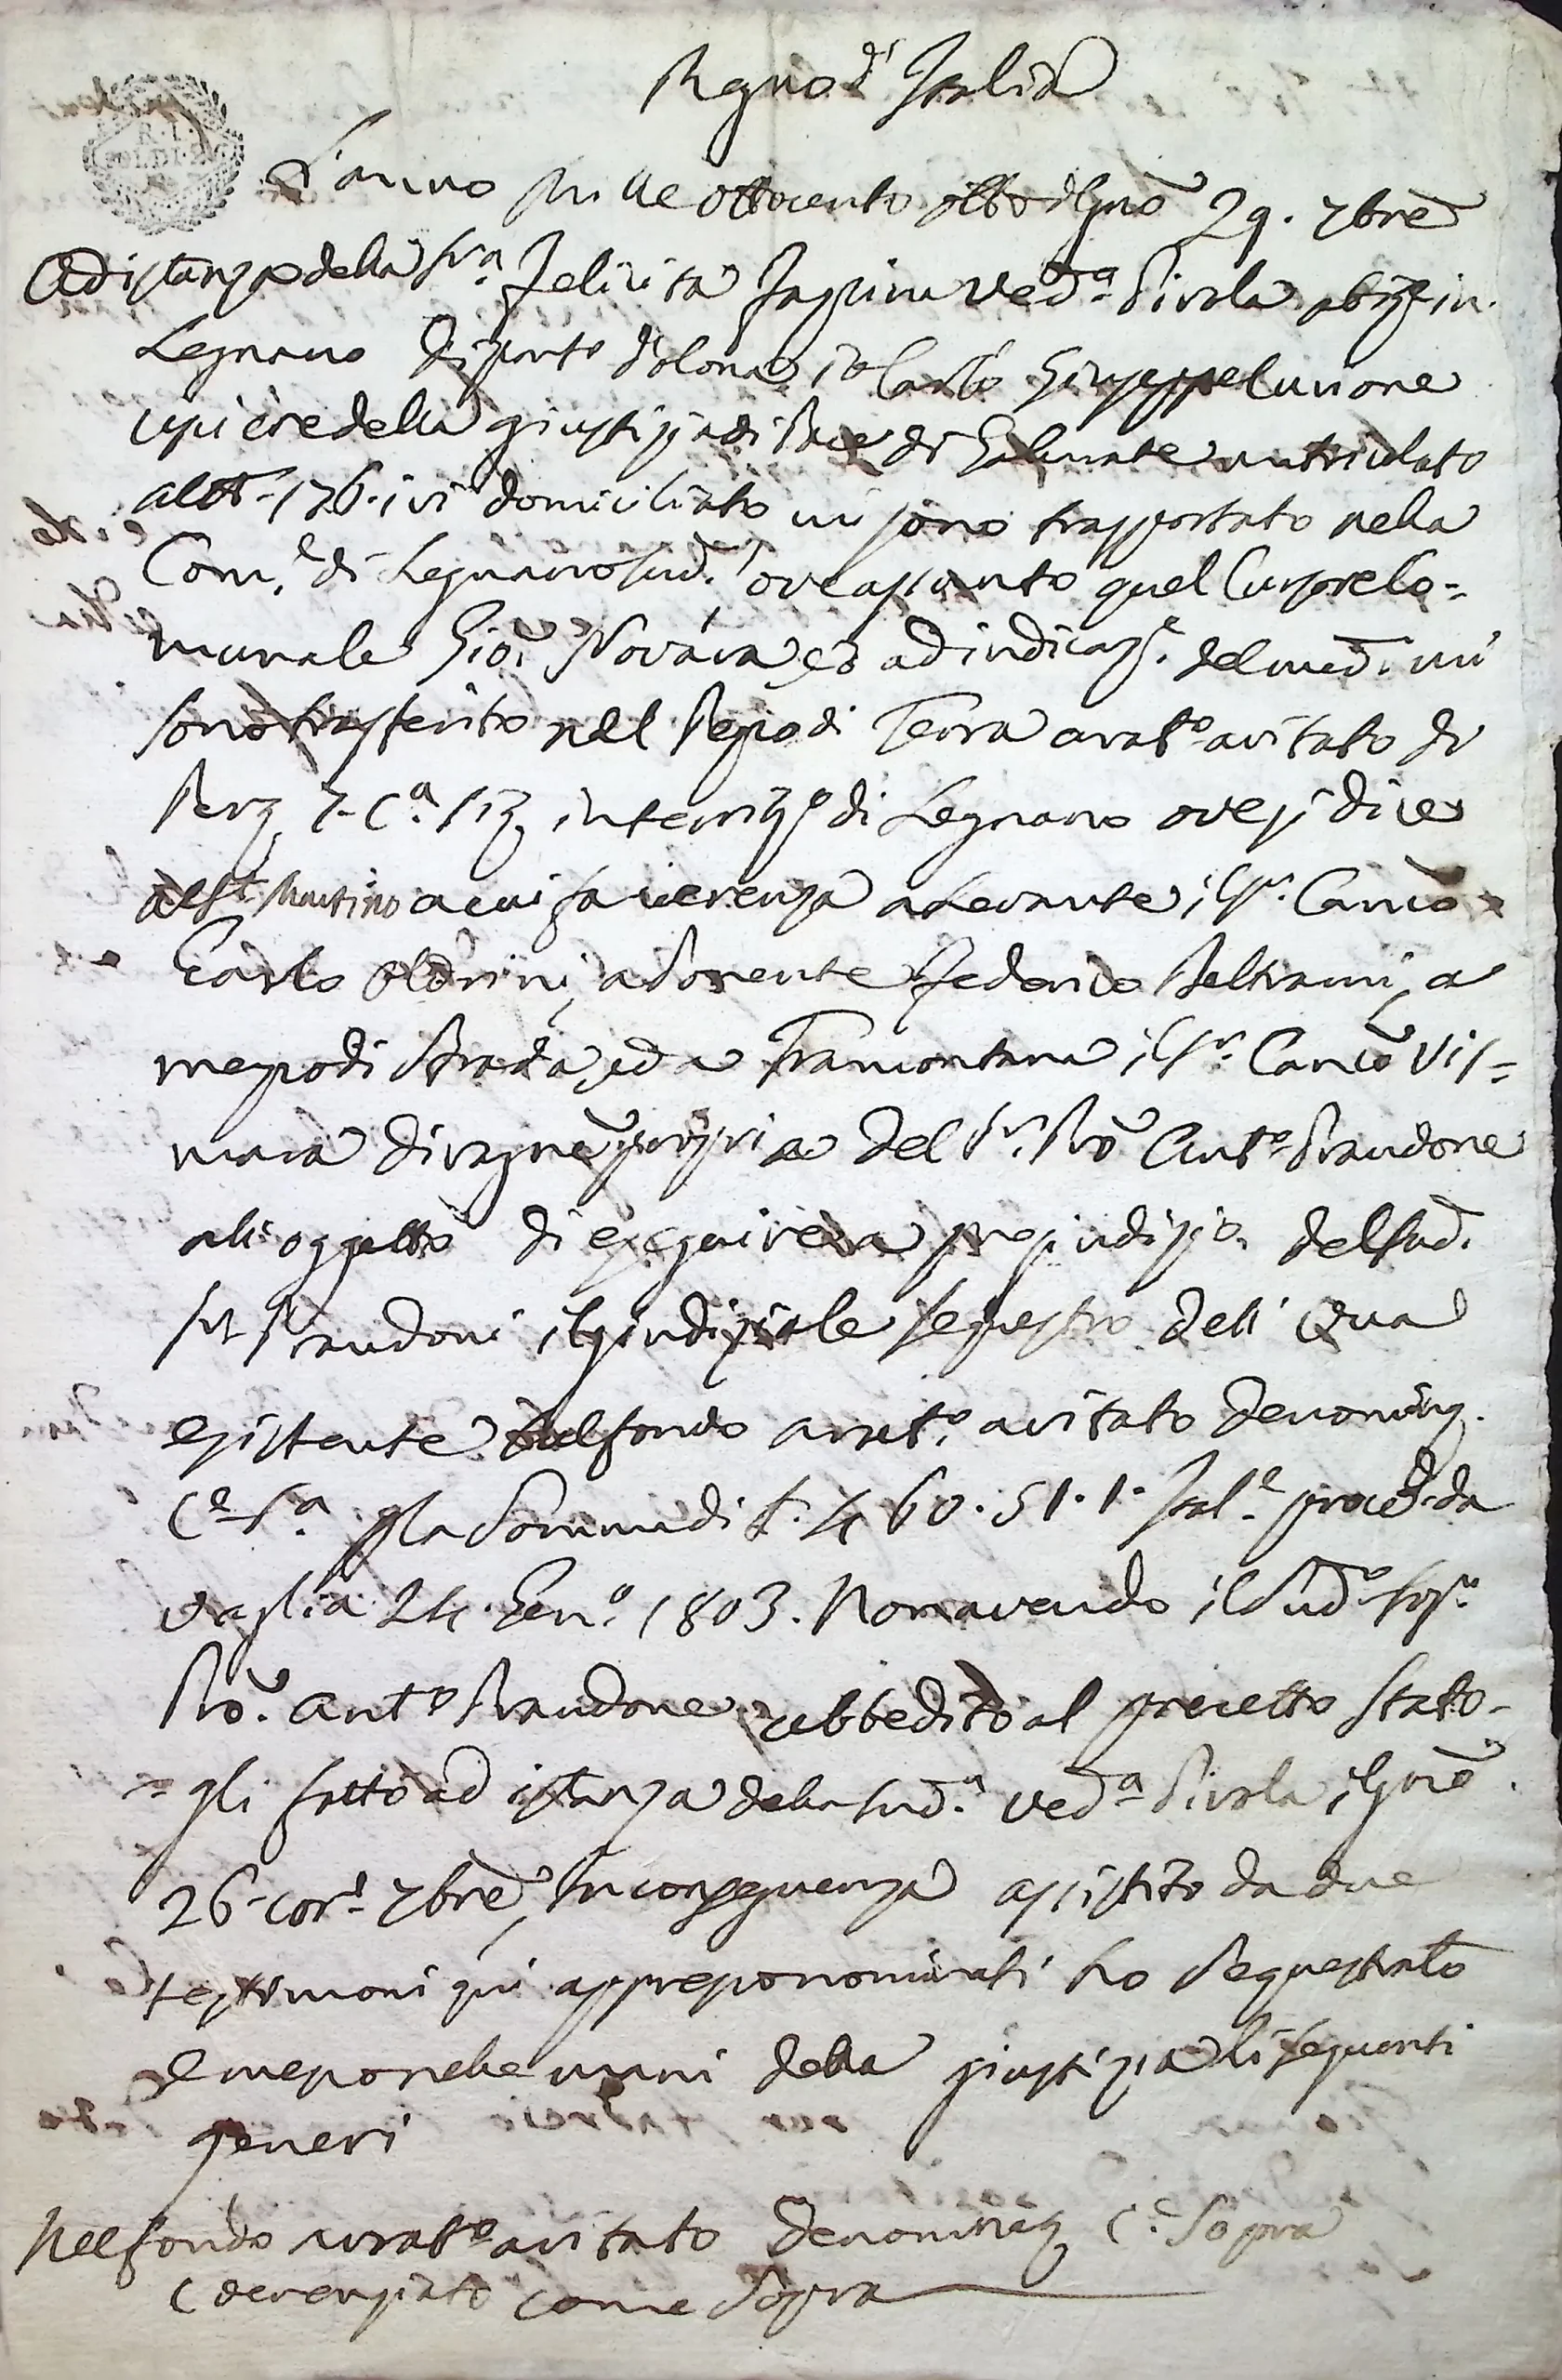 Regno d'Italia
R. I.
SOLDI
L'anno Mille ottocento otto il gno 29. 7bre
Ad istanza della Sra. Felicita ved.a Pirola abitte in
Legnano Dipart.o d'olona, io Carlo Giuseppe
usciere della giustizia di Pace di matricolato
all N. 176. ivi domiciliato mi sono trapportato nella
Com.e di Legnano sud.a ove assunto quel Cursore Co=
munale Gio. Novara ed ad indicaz.e del med. mi
sono trasferito nel Pezzo di Terra arat.o avitato di
Perz. 7. C.a 13 in territ.o di Legnano ove si dice
al St. Martino a cui fa coerenza a Levante il Sr. Canco
Carlo Oldrini, a Ponente Federico Beltrami, a
mezzodi Strada, ed a Tramontana il Sr. Canco Vis=
mara di ragne propria del Sr. Pro Ant.o Prandone
all'oggetto di eseguire a pregiudizio del sud.
Sr. Prandoni il giudiziale sequestro deli Qua
esistente sul fondo arat.o avitato denominz.
C.e S.a p la Somma di L. 460. 51. 1. Ital.e proced. da
vaglia 24. Gen.o 1803. Non avendo il Sud.o Sig.r
Pro. Ant.o Prandone ubbedito al precetto stato=
=gli fatto ad istanza della sud.a ved.a Pirola il gno
26 cor.e 7bre, In conseguenza assistito da due
testimoni qui appresso nominati ho Sequestrato
e messo nelle mani della giustizia li seguenti
generi
Nel fondo arat.o avitato denominaz C.e Sopra
Coerenziato come Sopra